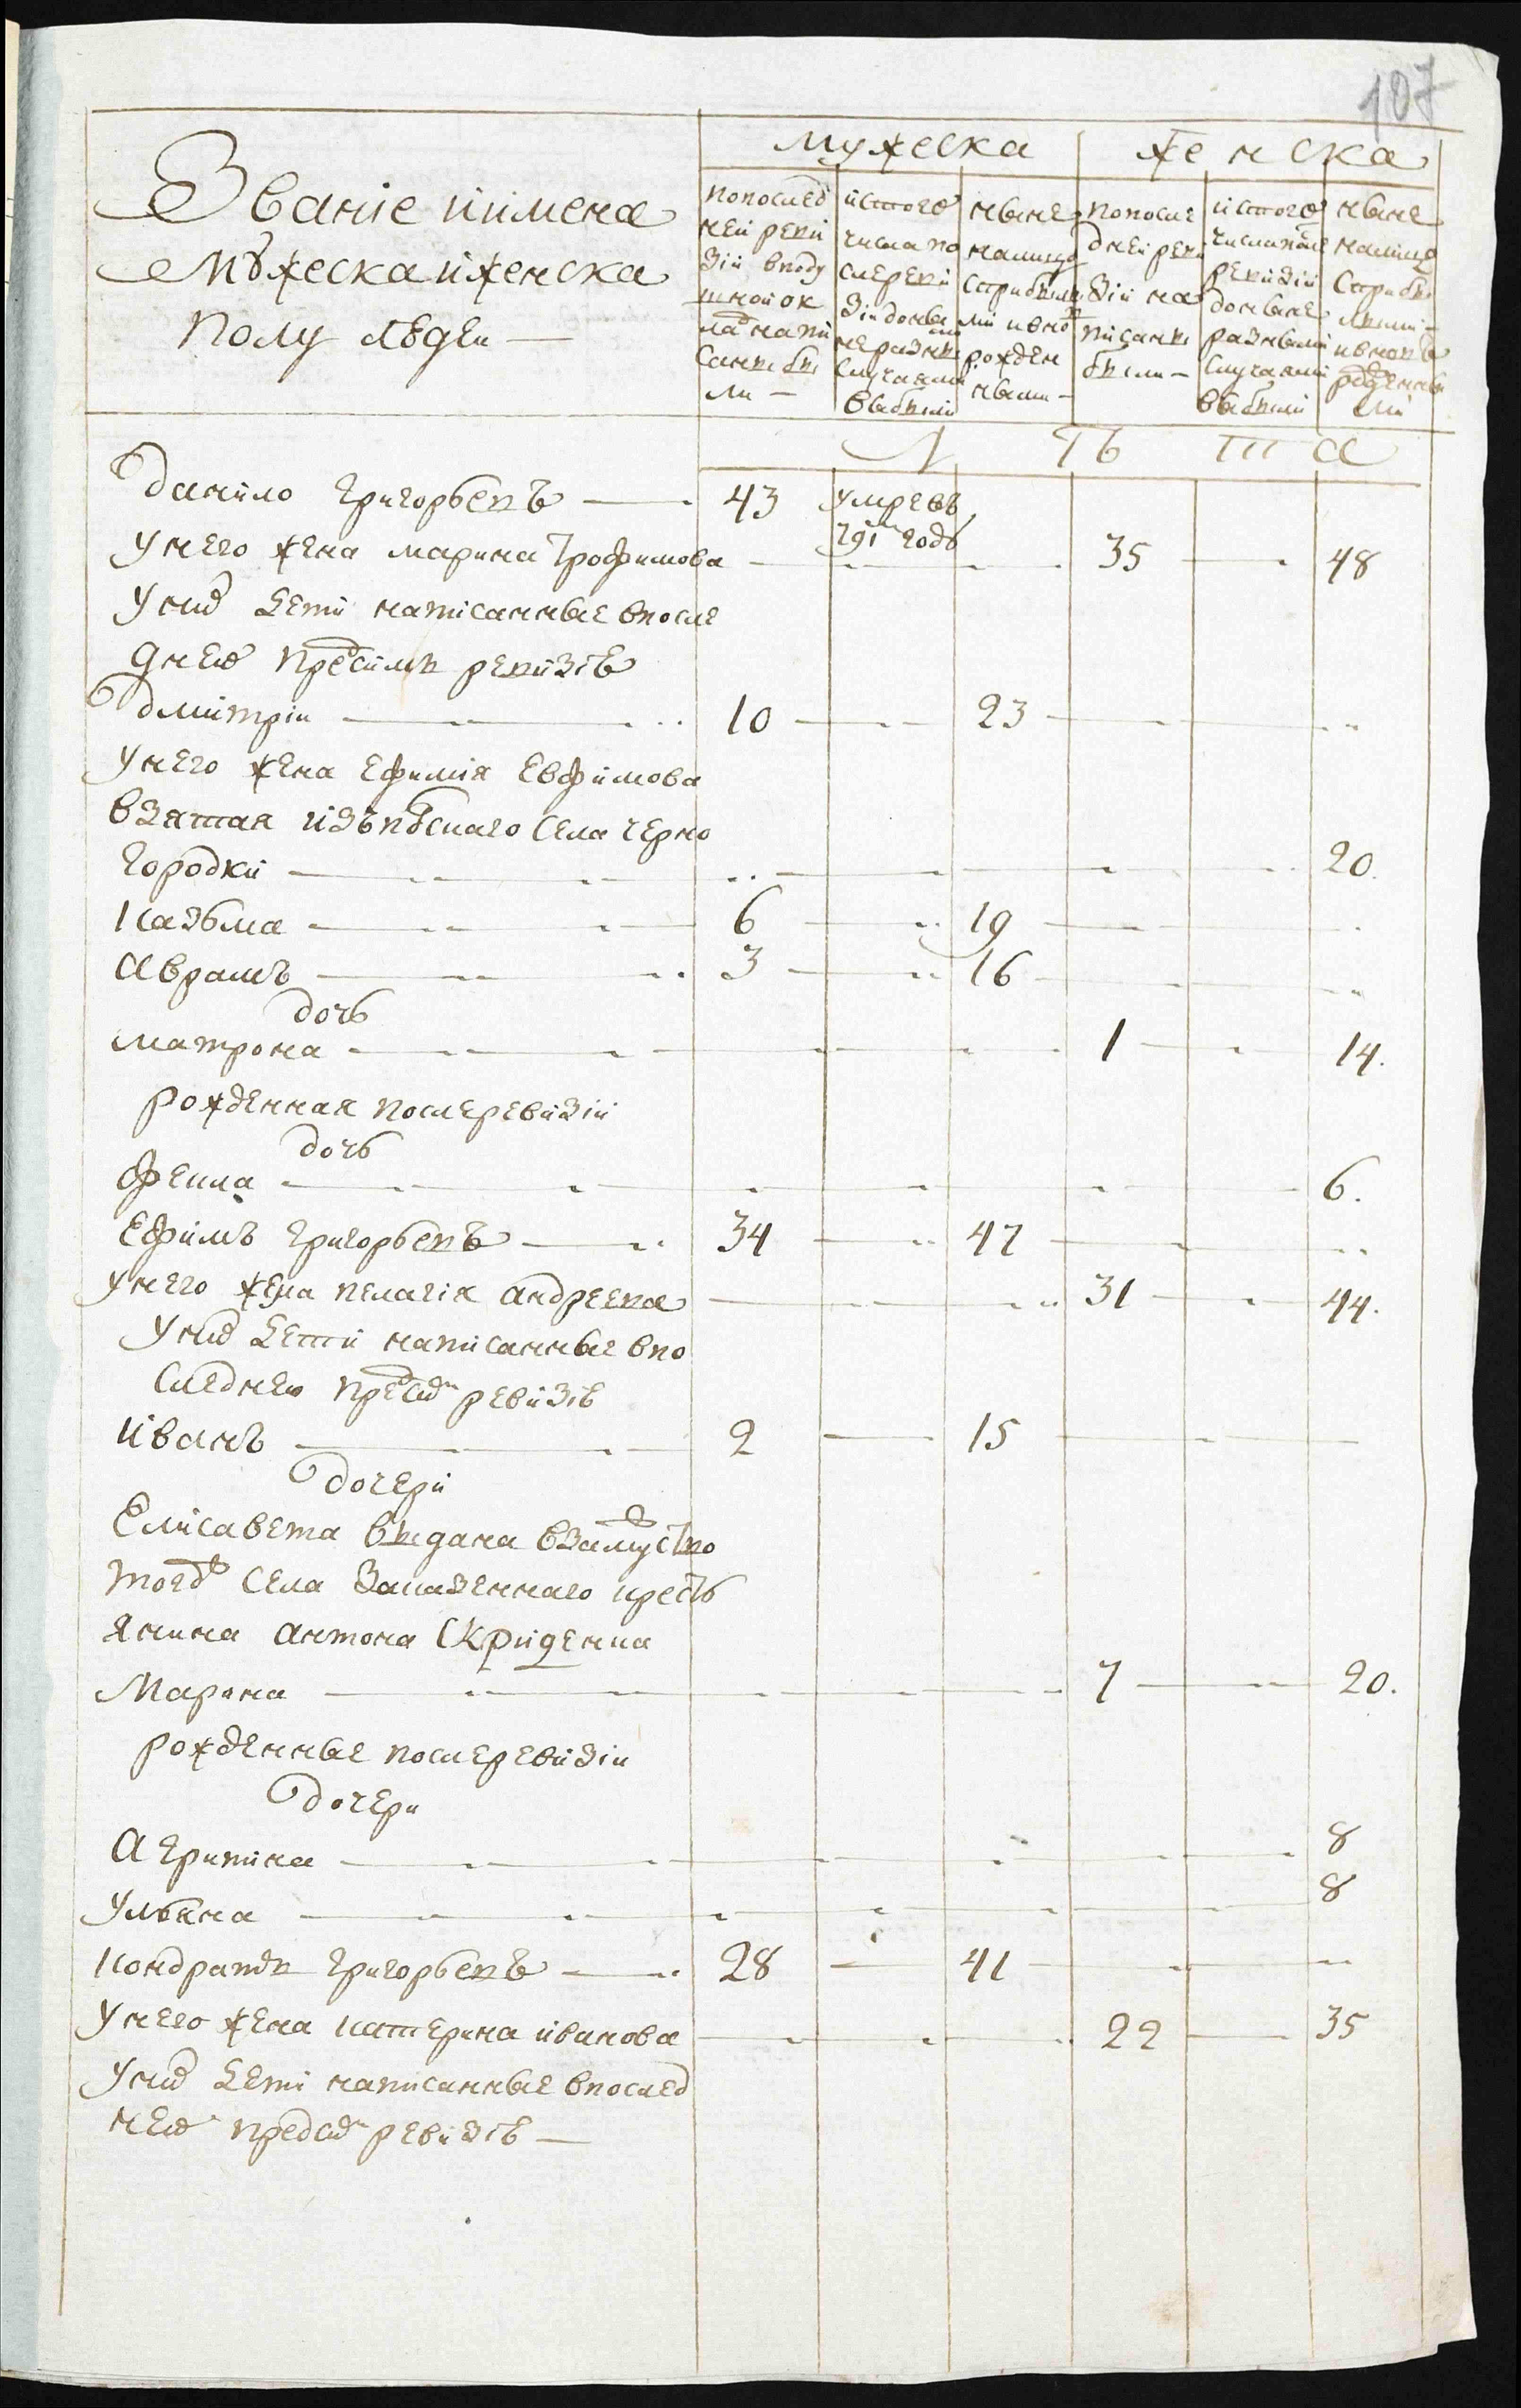 107
мужеска женска
Званіе иимена
мужеска иженска
полу людеи —
попослед
неи реви
зіи вподу
шнои ок
ладнапи
саны бы
ли —
истого
числа по
слереви
зіи доны
не разны
случаями
выбыли
ныне
налицо
сприбылы
ми ивно
рожден
ными —
попосле
днеи реви
зіи на
писаны
были —
истого
числапосле
ревизіи
доныне
разными
случаями
выбыли
ныне
налицо
сприбы
лыми
ивновь
рожденны
ми
Л Ѣ Т А
Данило Григорьевъ — 43 умревъ
791м годѣ
Унего жена марина Трофимова — 35 — 48
Уних дети написанные впосле
днею пред симъ ревизіе
Дмитріи — 10 — 23 —
Унего жена Ефимія Евфимова
взятая изъ села черно
городки — 20.
Казьма — 6 — 19 —
Аврамъ — 3 — 16 —
дочь
матрона — 1 — 14.
рожденная послеревизіи
дочь
Фекла — 6.
Ефимъ Григорьевъ — 34 — 47 —
унего жена пелагія андреева — 31 — 44.
Уних дети написанные впо
следнею пред сим ревизіе
Иванъ — 2 — 15 —
Дочери
Елисавета выдана взамуство
тогож села казеннаго кресть
янина антона Скриденка
Марина — 7 — 20.
рожденные послеревизіи
Дочери
Агрипина — 8
Ульяна — 8
Кондратъ Григорьевъ — 28 — 41 —
Унего жена катерина иванова — 22 — 35
Уних дети написанные впослед
нею пред сим ревизіе —